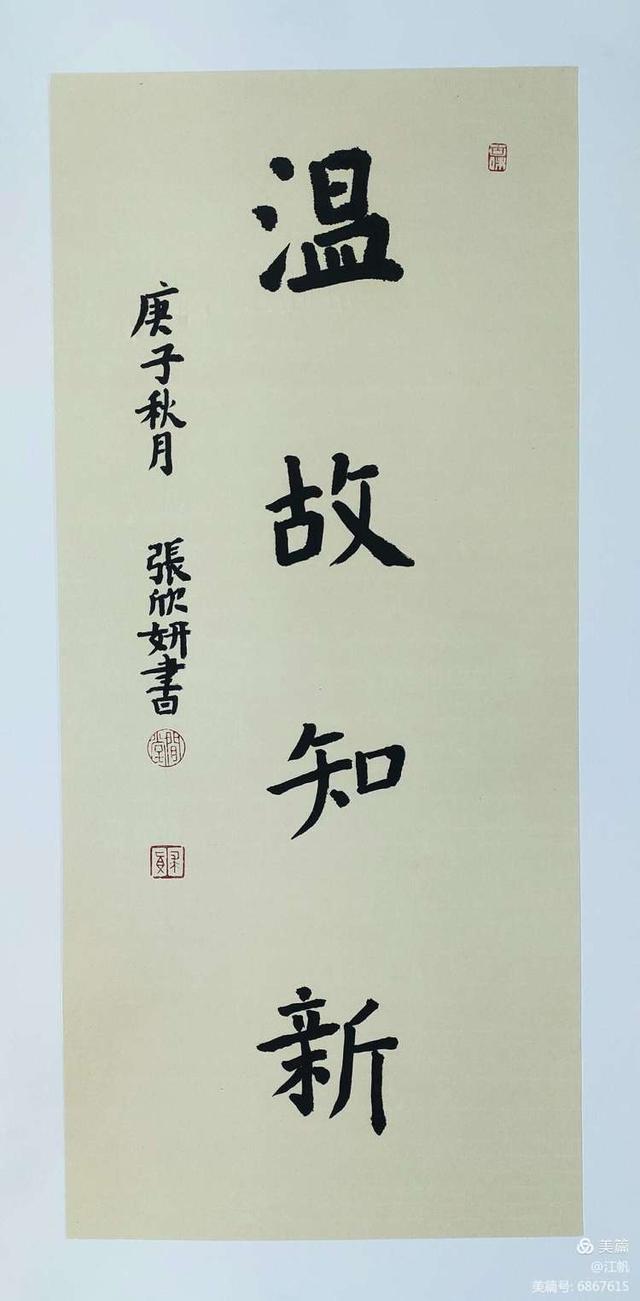 温故知新
庚子秋月 張欣妍書
美篇
@江帆
美篇号: 6867615